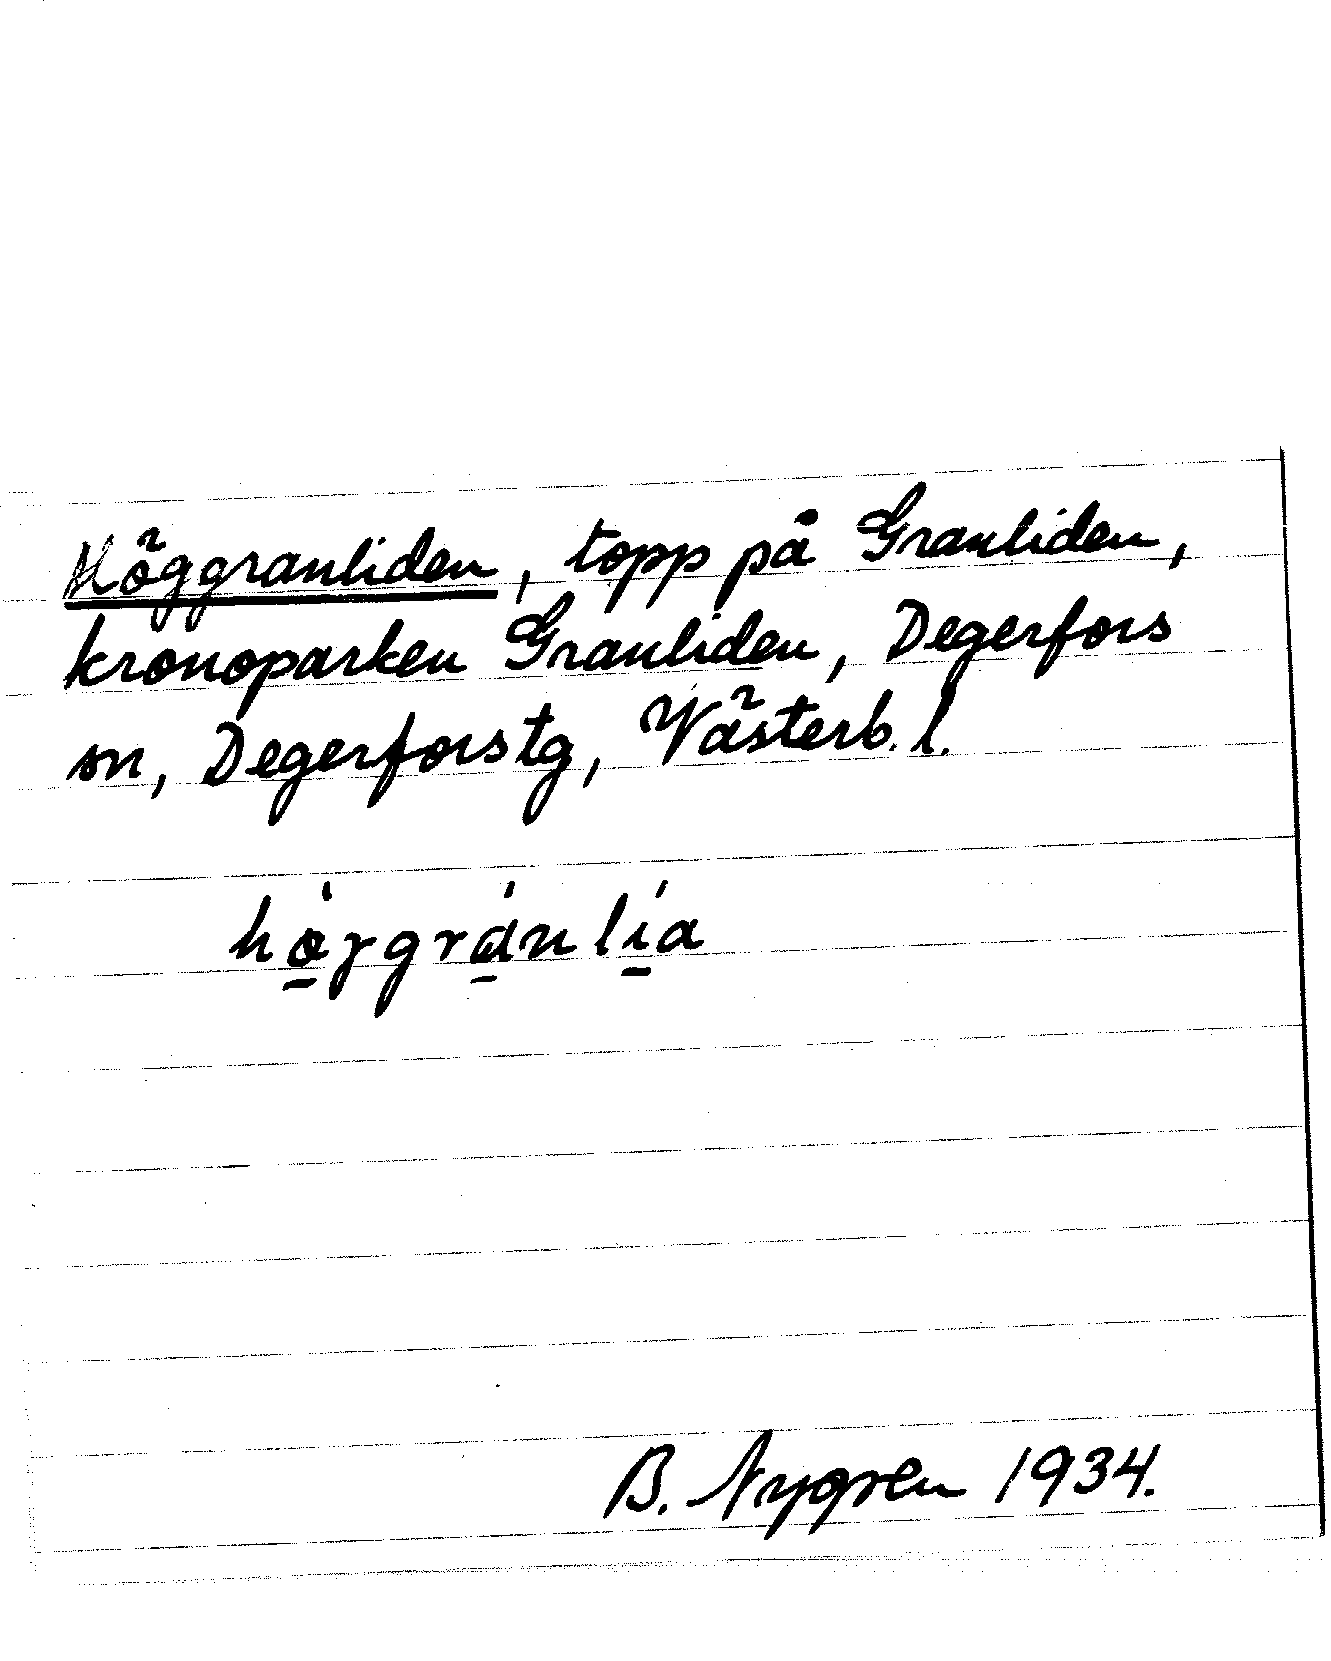 Höggranliden, topp på Granliden,
kronoparken Granliden, Degerfors
sn, Degerfors tg, Västerb. l.
hö̱́ɣgrá̱nlí̱a
B. Nygren 1934.